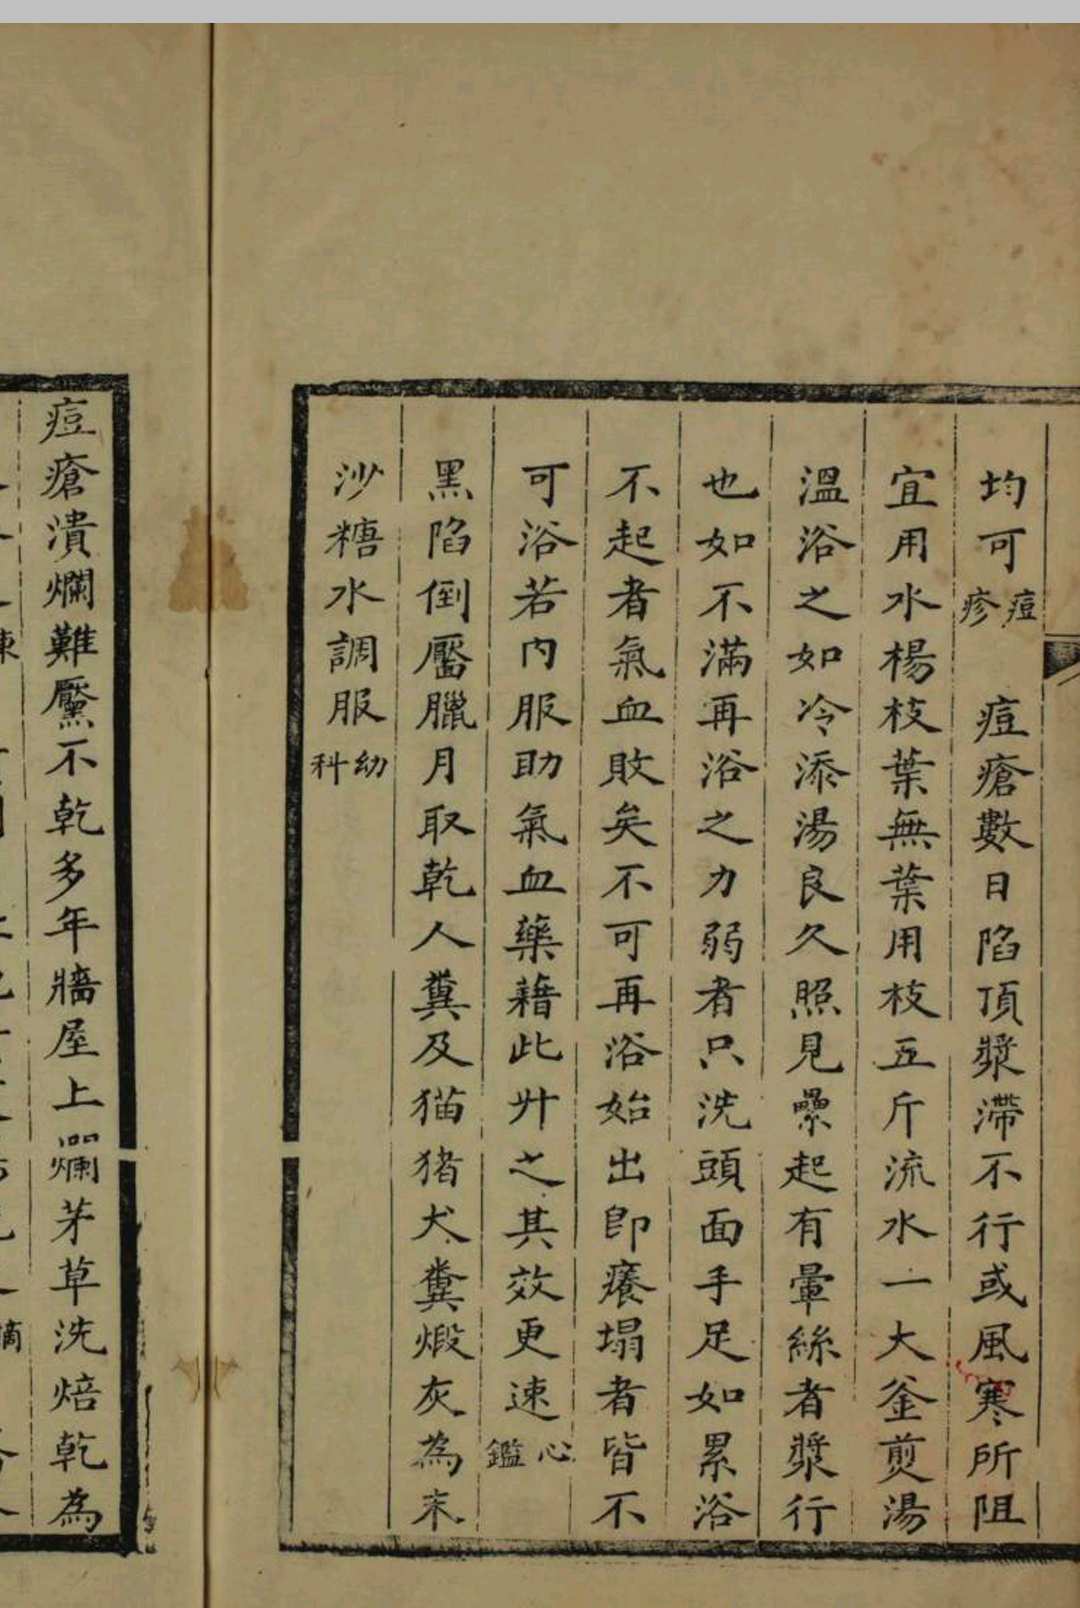 均可痘疹　痘瘡數日陷頂漿滯不行或風寒所阻
宜用水楊枝葉無葉用枝五斤流水一大釜煎湯
溫浴之如冷添湯良久照見纍起有暈絲者漿行
也如不滿再浴之力弱者只洗頭面手足如累浴
不起者氣血敗矣不可再浴始出卽癢塌者皆不
可浴若內服助氣血藥藉此升之其效更速心鑑
黑陷倒靨臘月取乾人糞及猫猪犬糞煅灰為末
沙糖水調服幼科
痘瘡潰爛難靨不乾多年牆屋上爛茅草洗焙乾為